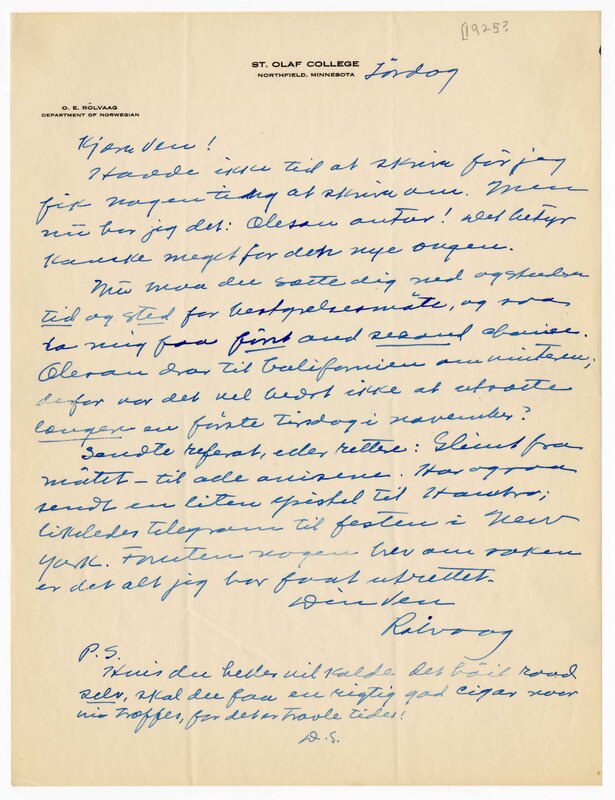 [1925?
ST. OLAF COLLEGE
NORTHFIELD, MINNESOTA
Lördag
O. E. RÖLVAAG
DEPARTMENT OF NORWEGIAN
Kjære Ven!
Hadde ikke tid at skrive för jeg
fik nogen ting at skrive om. Men
nu har jeg det: Oleson antar! Det betyr
kanske meget for den nye ongen.
Nu maa du sætte dig ned og
tid og sted for bestyrelsesmöte, og saa
la mig faa först and second choice.
Oleson drar til Californien om vinteren;
derfor var det vel bedst ikke at utsætte
længere en förste tirsdag i november?
Sendte referat, eller rettere: Glimt fra
mötet – til alle aviserne. Har ogsaa
sendt en liten epistel til Hambro;
likeledes telegram til festen i New
York. Foruten nogen brev om saken
er det alt jeg har faat utrettet.
Din Ven
Rölvaag
P.S.
Hvis du heller vil kalde det böie raad
selv, skal du faa en rigtig god cigar naar
vi træffes, for det er travle tider!
D.S.